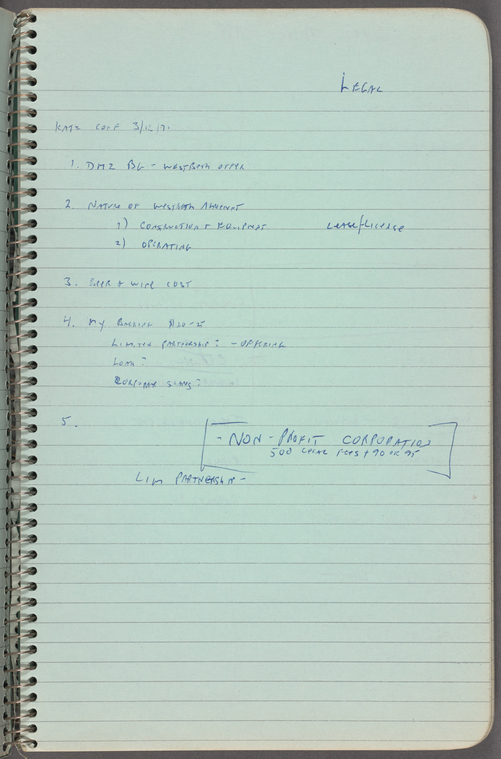 LEGAL
KATZ CONF 3/12/71
1. DMZ BG - WESTBETH OFFER
2. NATURE OF WESTBETH
1) CONSTRUCTION + EQUIPMENT LEASE/LICENSE
2) OPERATING
3. + WINE COST
4. MY
LIMITED PARTNERSHIP? - OFFERING
LOAN?
CORPORATE
5.
- NON-PROFIT CORPORATION
500 LEGAL FEES + 90 OR 95
LIM PARTNERSHIP -